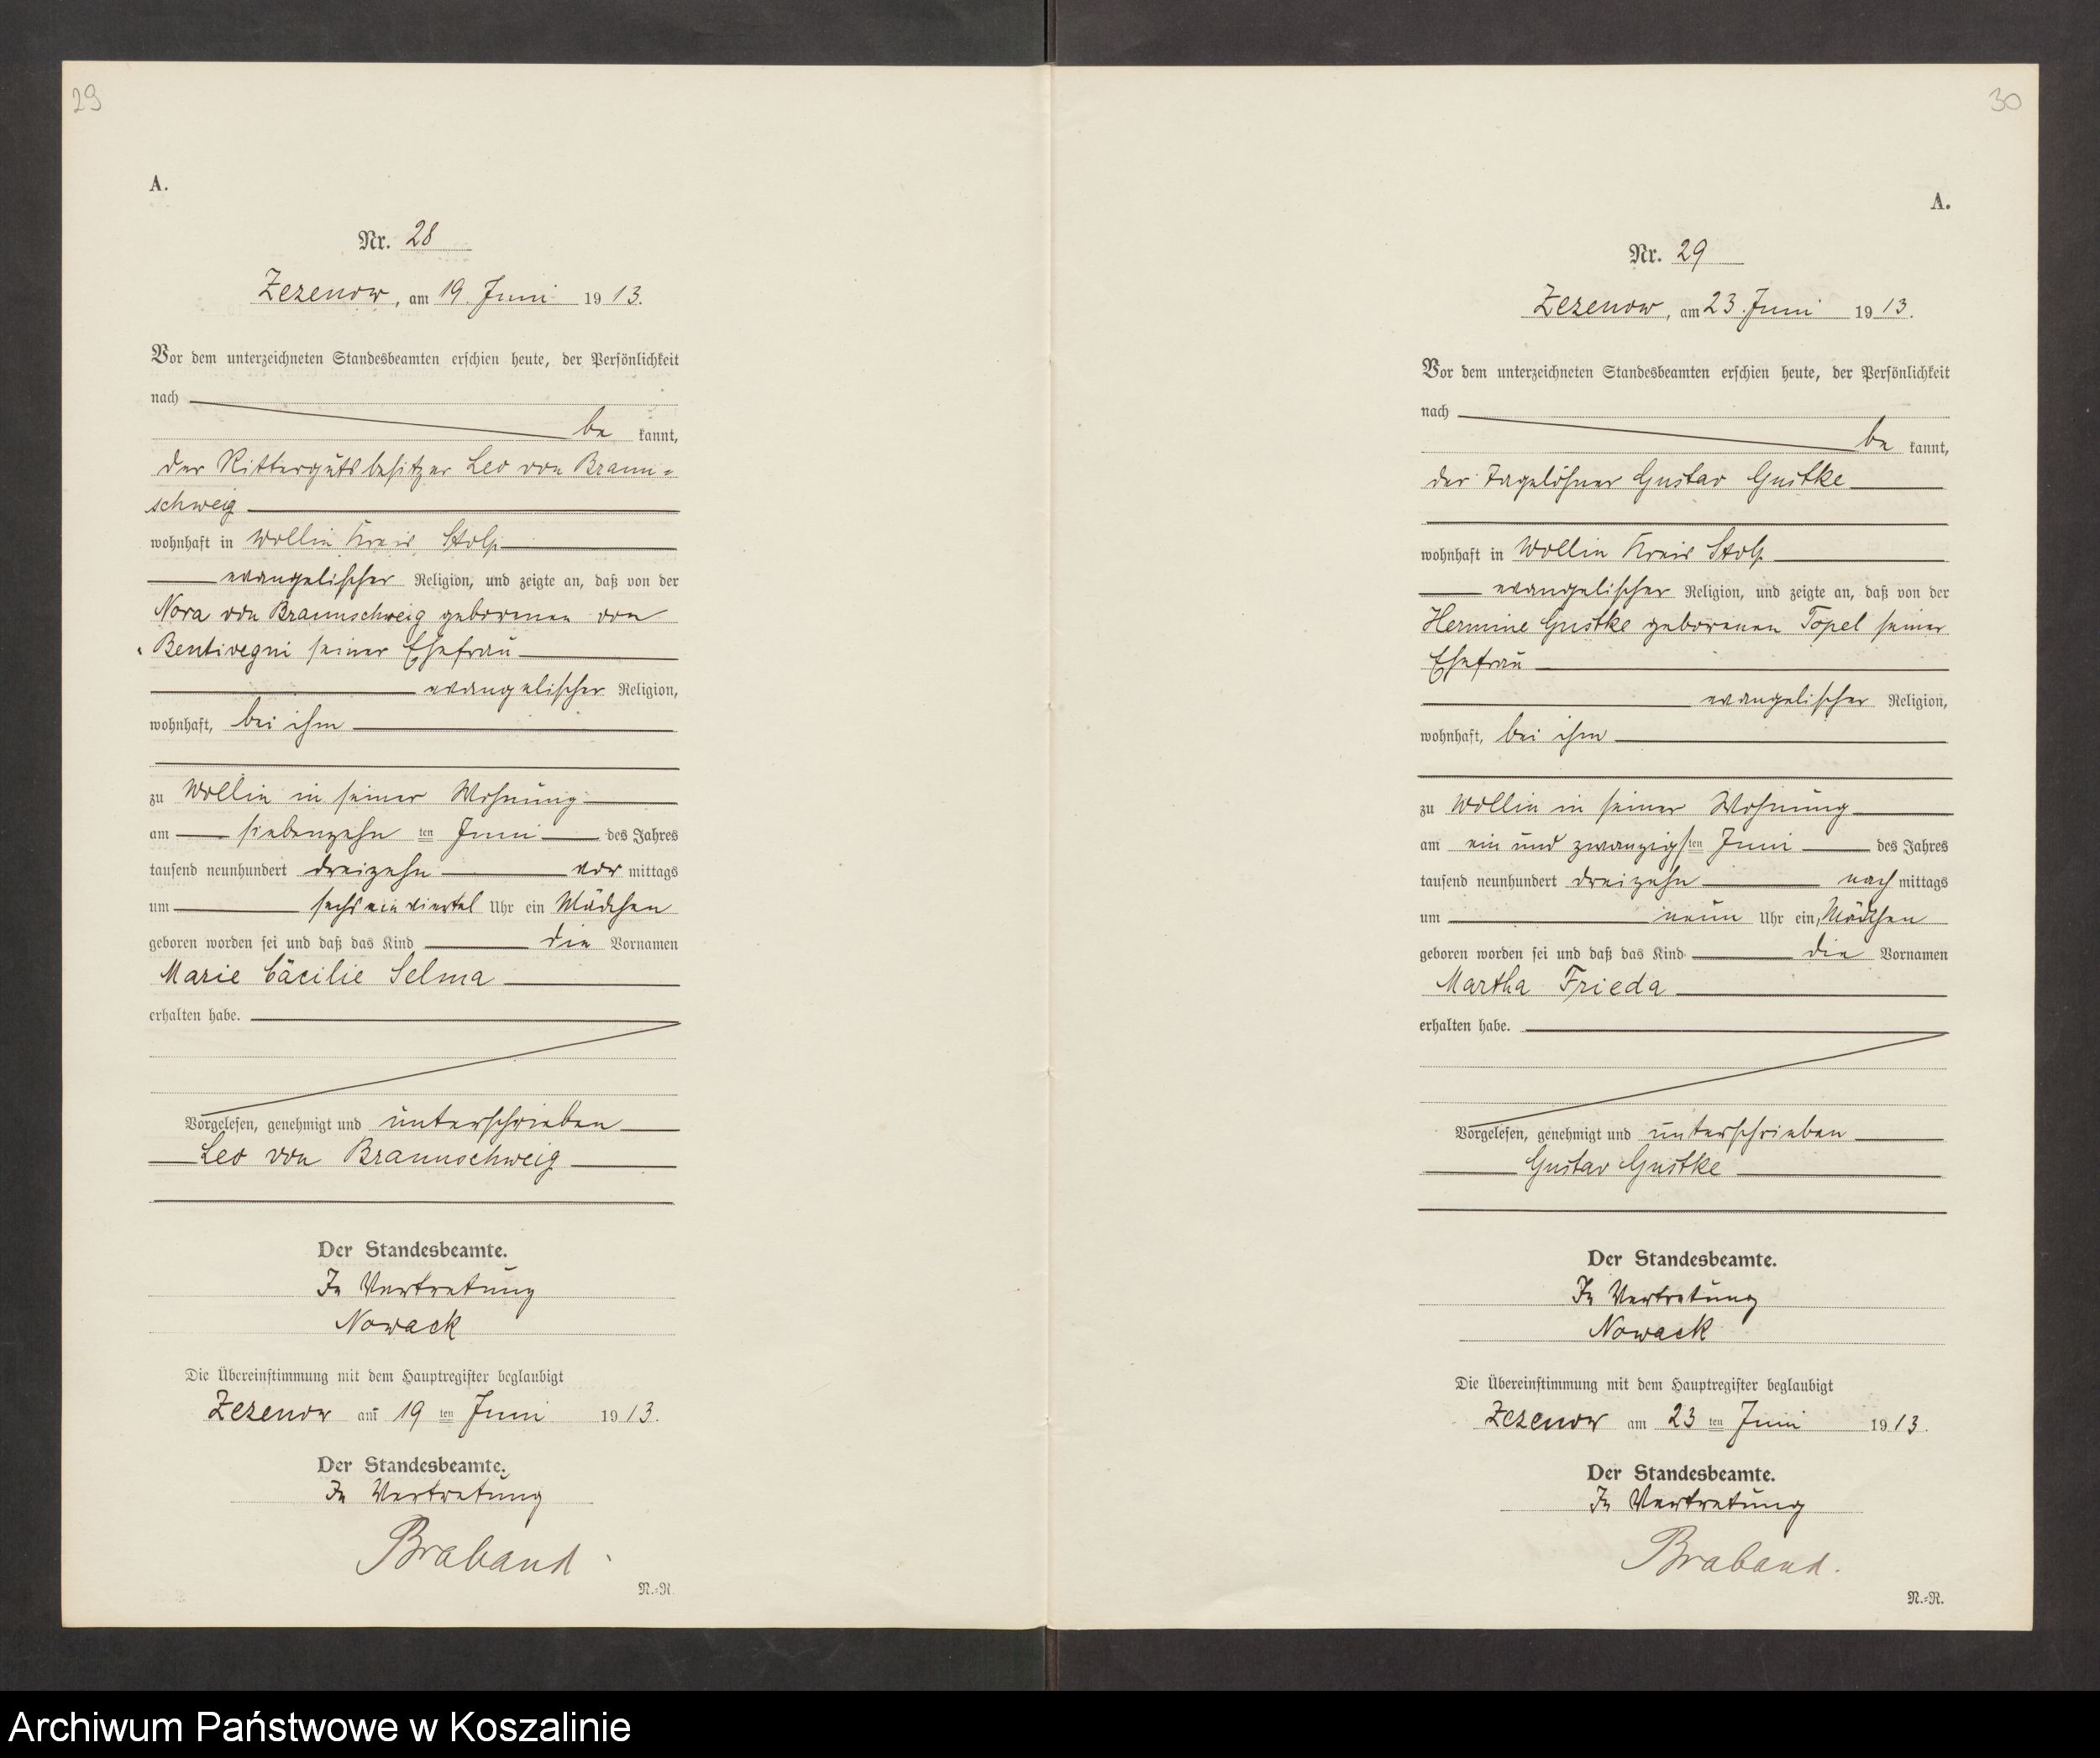 29
A.
Nr. 28
Zezenow, am 19. Juni 1913.
Vor dem unterzeichneten Standesbeamten erschien heute, der Persönlichkeit
nach
be kannt,
der Rittergutsbesitzer Leo von Braun=
schweig
wohnhaft in Wollin Kreis Stolp
evangelischer Religion, und zeigte an, daß von der
Nora von Braunschweig geborenen von
Bentivegni seiner Ehefrau
evangelischer Religion,
wohnhaft, bei ihm
zu Wollin in seiner Wohnung
am siebenzehn ten Juni des Jahres
tausend neunhundert dreizehn vor mittags
um sechs ein viertel Uhr ein Mädchen
geboren worden sei und daß das Kind die Vornamen
Marie Cäcilie Selma
erhalten habe.
Vorgelesen, genehmigt und unterschrieben
Leo von Braunschweig
Der Standesbeamte.
In Vertretung
Nowack
Die Übereinstimmung mit dem Hauptregister beglaubigt
Zezenow am 19 ten Juni 1913.
Der Standesbeamte.
In Vertretung
Braband
N.=R.
30
A.
Nr. 29
Zezenow, am 23. Juni 1913.
Vor dem unterzeichneten Standesbeamten erschien heute, der Persönlichkeit
nach
be kannt,
der Tagelöhner Gustav Gustke
wohnhaft in Wollin Kreis Stolp
evangelischer Religion, und zeigte an, daß von der
Hermine Gustke geborenen Topel seiner
Ehefrau
evangelischer Religion,
wohnhaft, bei ihm
zu Wollin in seiner Wohnung
am ein und zwanzigsten Juni des Jahres
tausend neunhundert dreizehn nach mittags
um neun Uhr ein Mädchen
geboren worden sei und daß das Kind die Vornamen
Martha Frieda
erhalten habe.
Vorgelesen, genehmigt und unterschrieben
Gustav Gustke
Der Standesbeamte.
In Vertretung
Nowack
Die Übereinstimmung mit dem Hauptregister beglaubigt
Zezenow am 23 ten Juni 1913.
Der Standesbeamte.
In Vertretung
Braband.
N.=R.
Archiwum Państwowe w Koszalinie